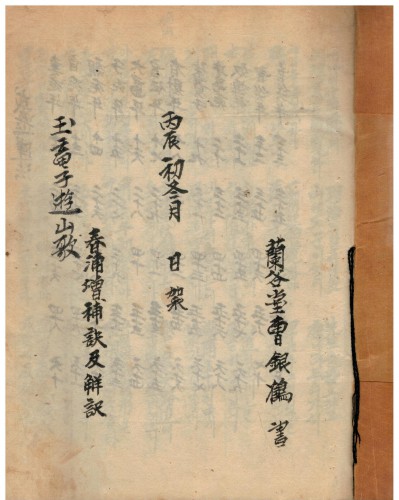 蘭谷堂曺銀鶴 書
丙辰 初冬月 日 架
玉竜子遊山歌
春浦增補訣及解